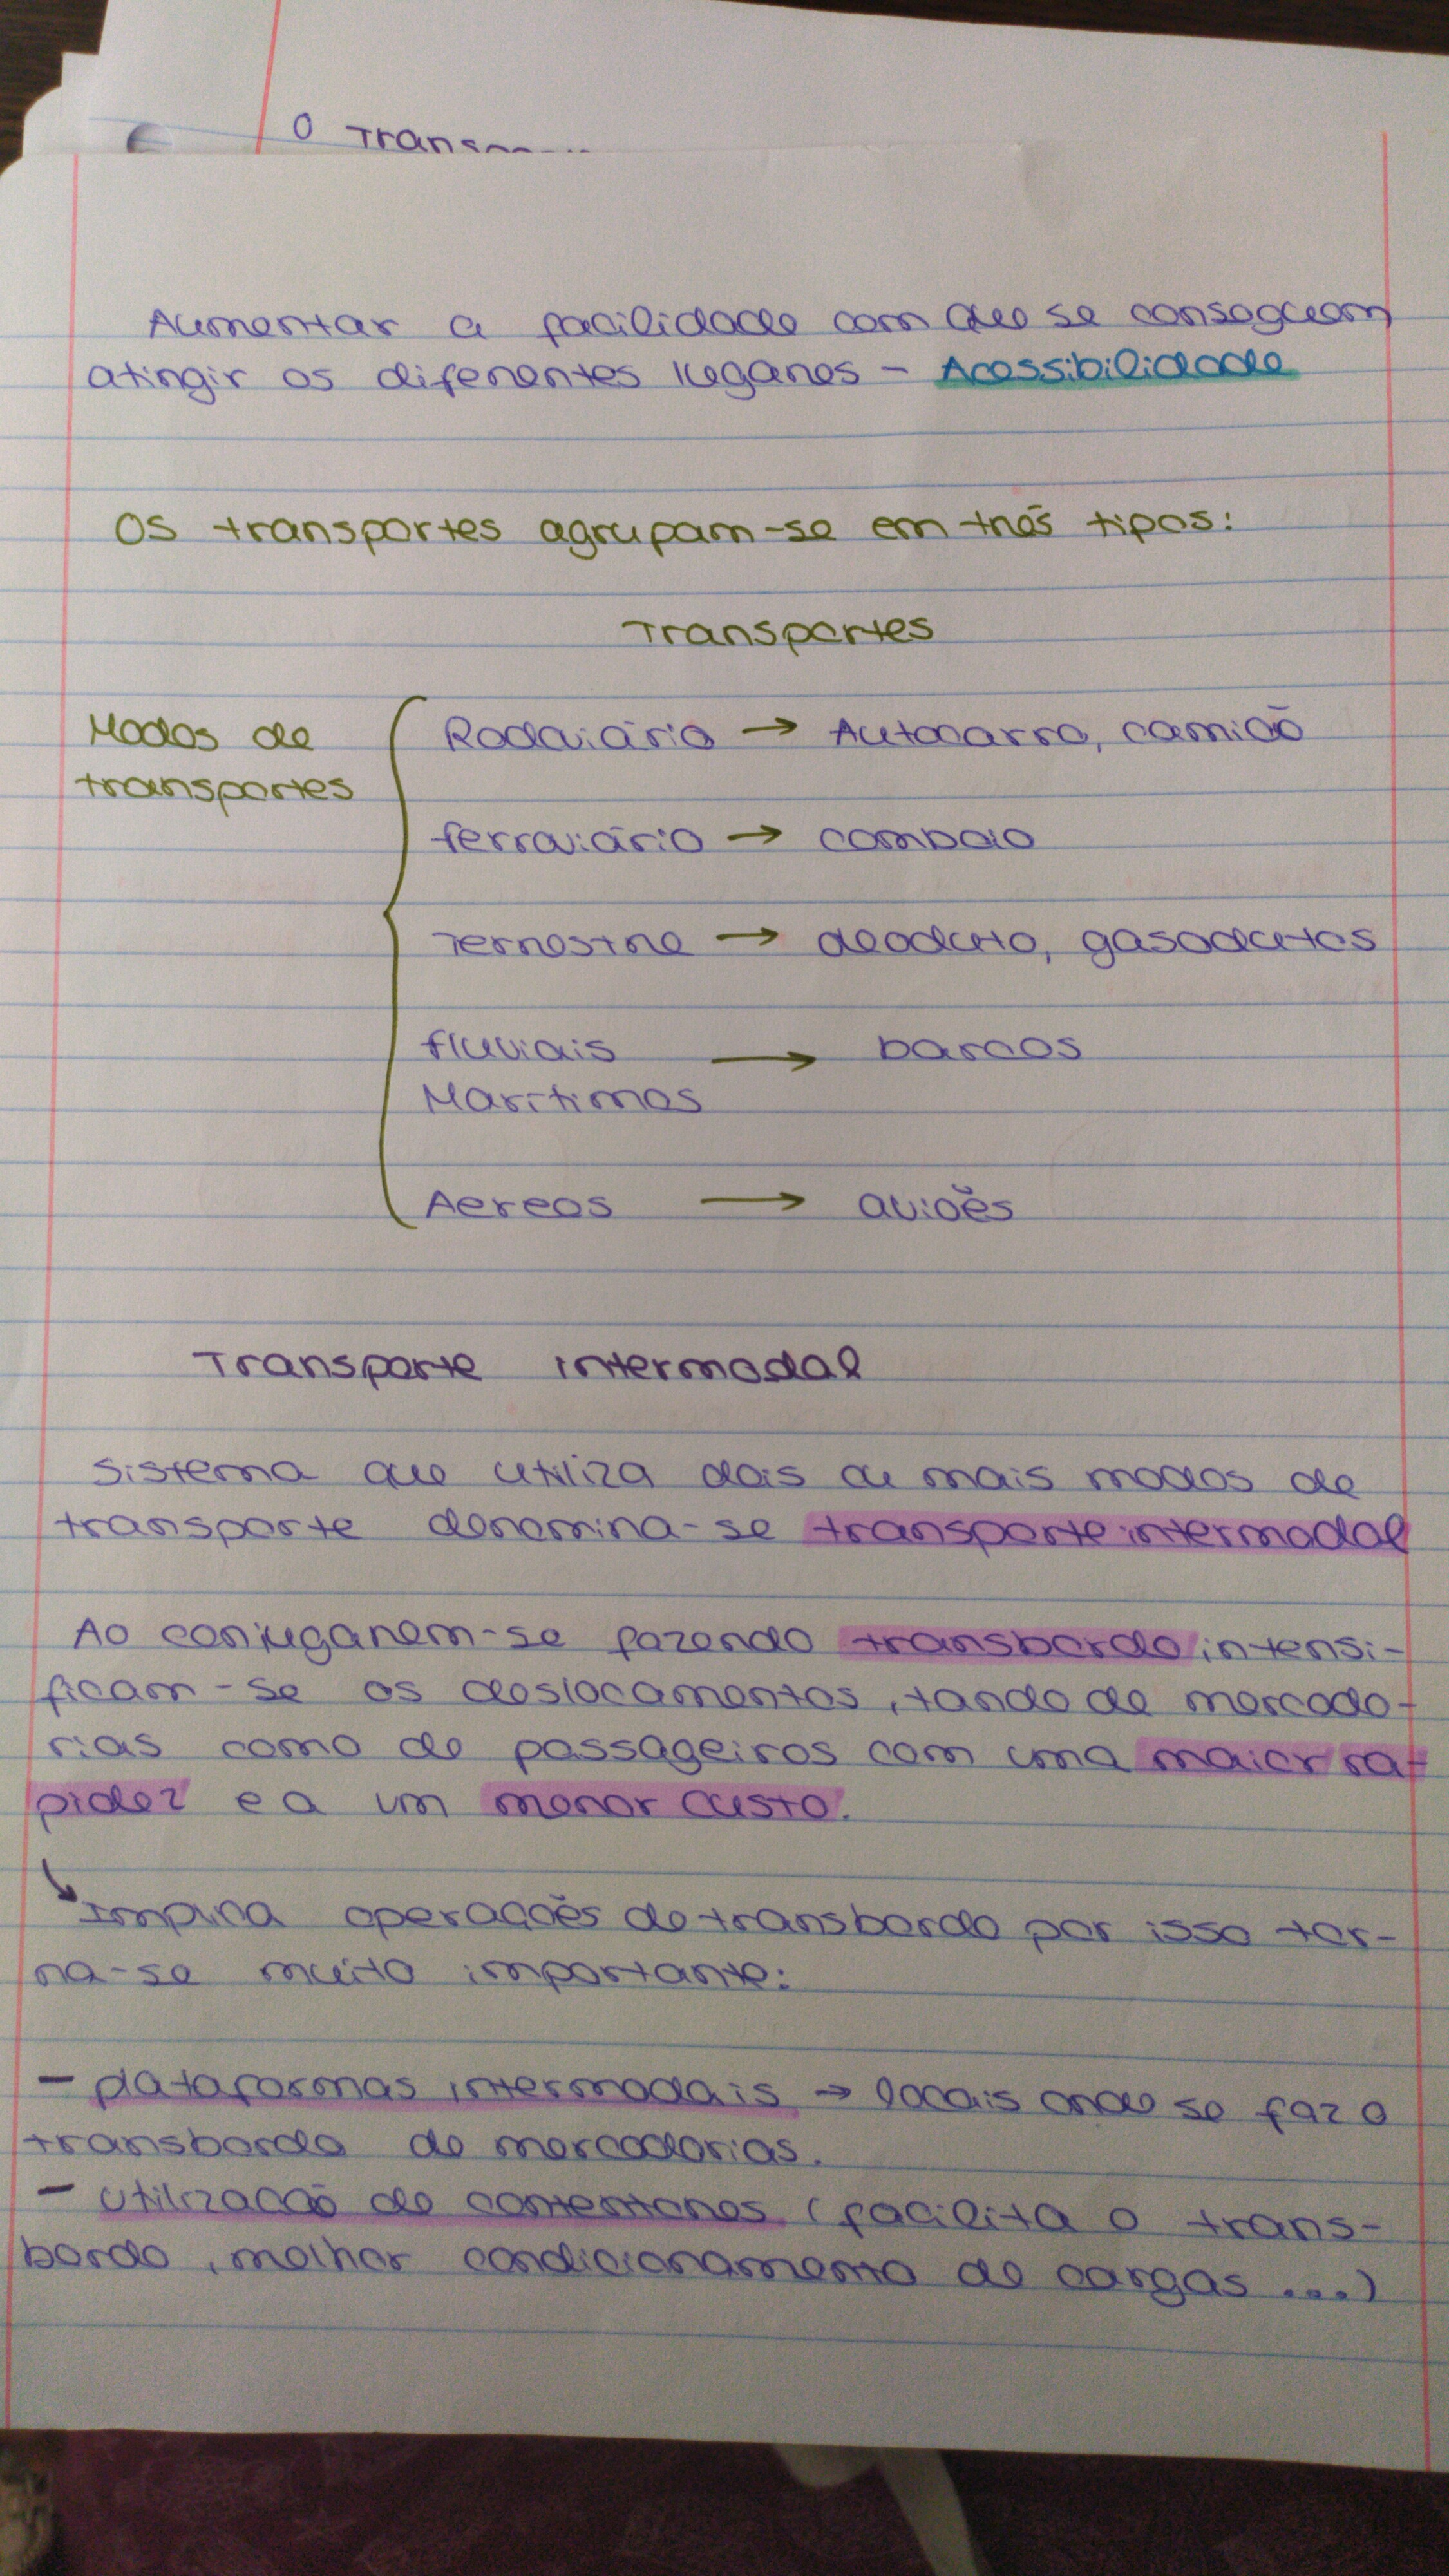 O Trans
Aumentar a facilidade com que se conseguem
atingir os diferentes lugares - Acessibilidade
Os transportes agrupam-se em três tipos:
Transportes
Modos de
transportes
Rodoviário → Autocarro, camião
ferroviário → comboio
Terrestre → oleoduto, gasodutos
fluviais → barcos
Marítimos
Aereos → aviões
Transporte intermodal
Sistema que utiliza dois ou mais modos de
transporte denomina-se transporte intermodal
Ao conjugarem-se fazendo transbordo intensi-
ficam-se os deslocamentos, tando de mercado-
rias como de passageiros com uma maior ra-
pidez e a um menor custo.
↘ Implica operações de transbordo por isso tor-
na-se muito importante:
- plataformas intermodais → locais onde se faz o
transbordo de mercadorias.
- utilização de contentores (facilita o trans-
bordo, melhor condicionamento de cargas ...)